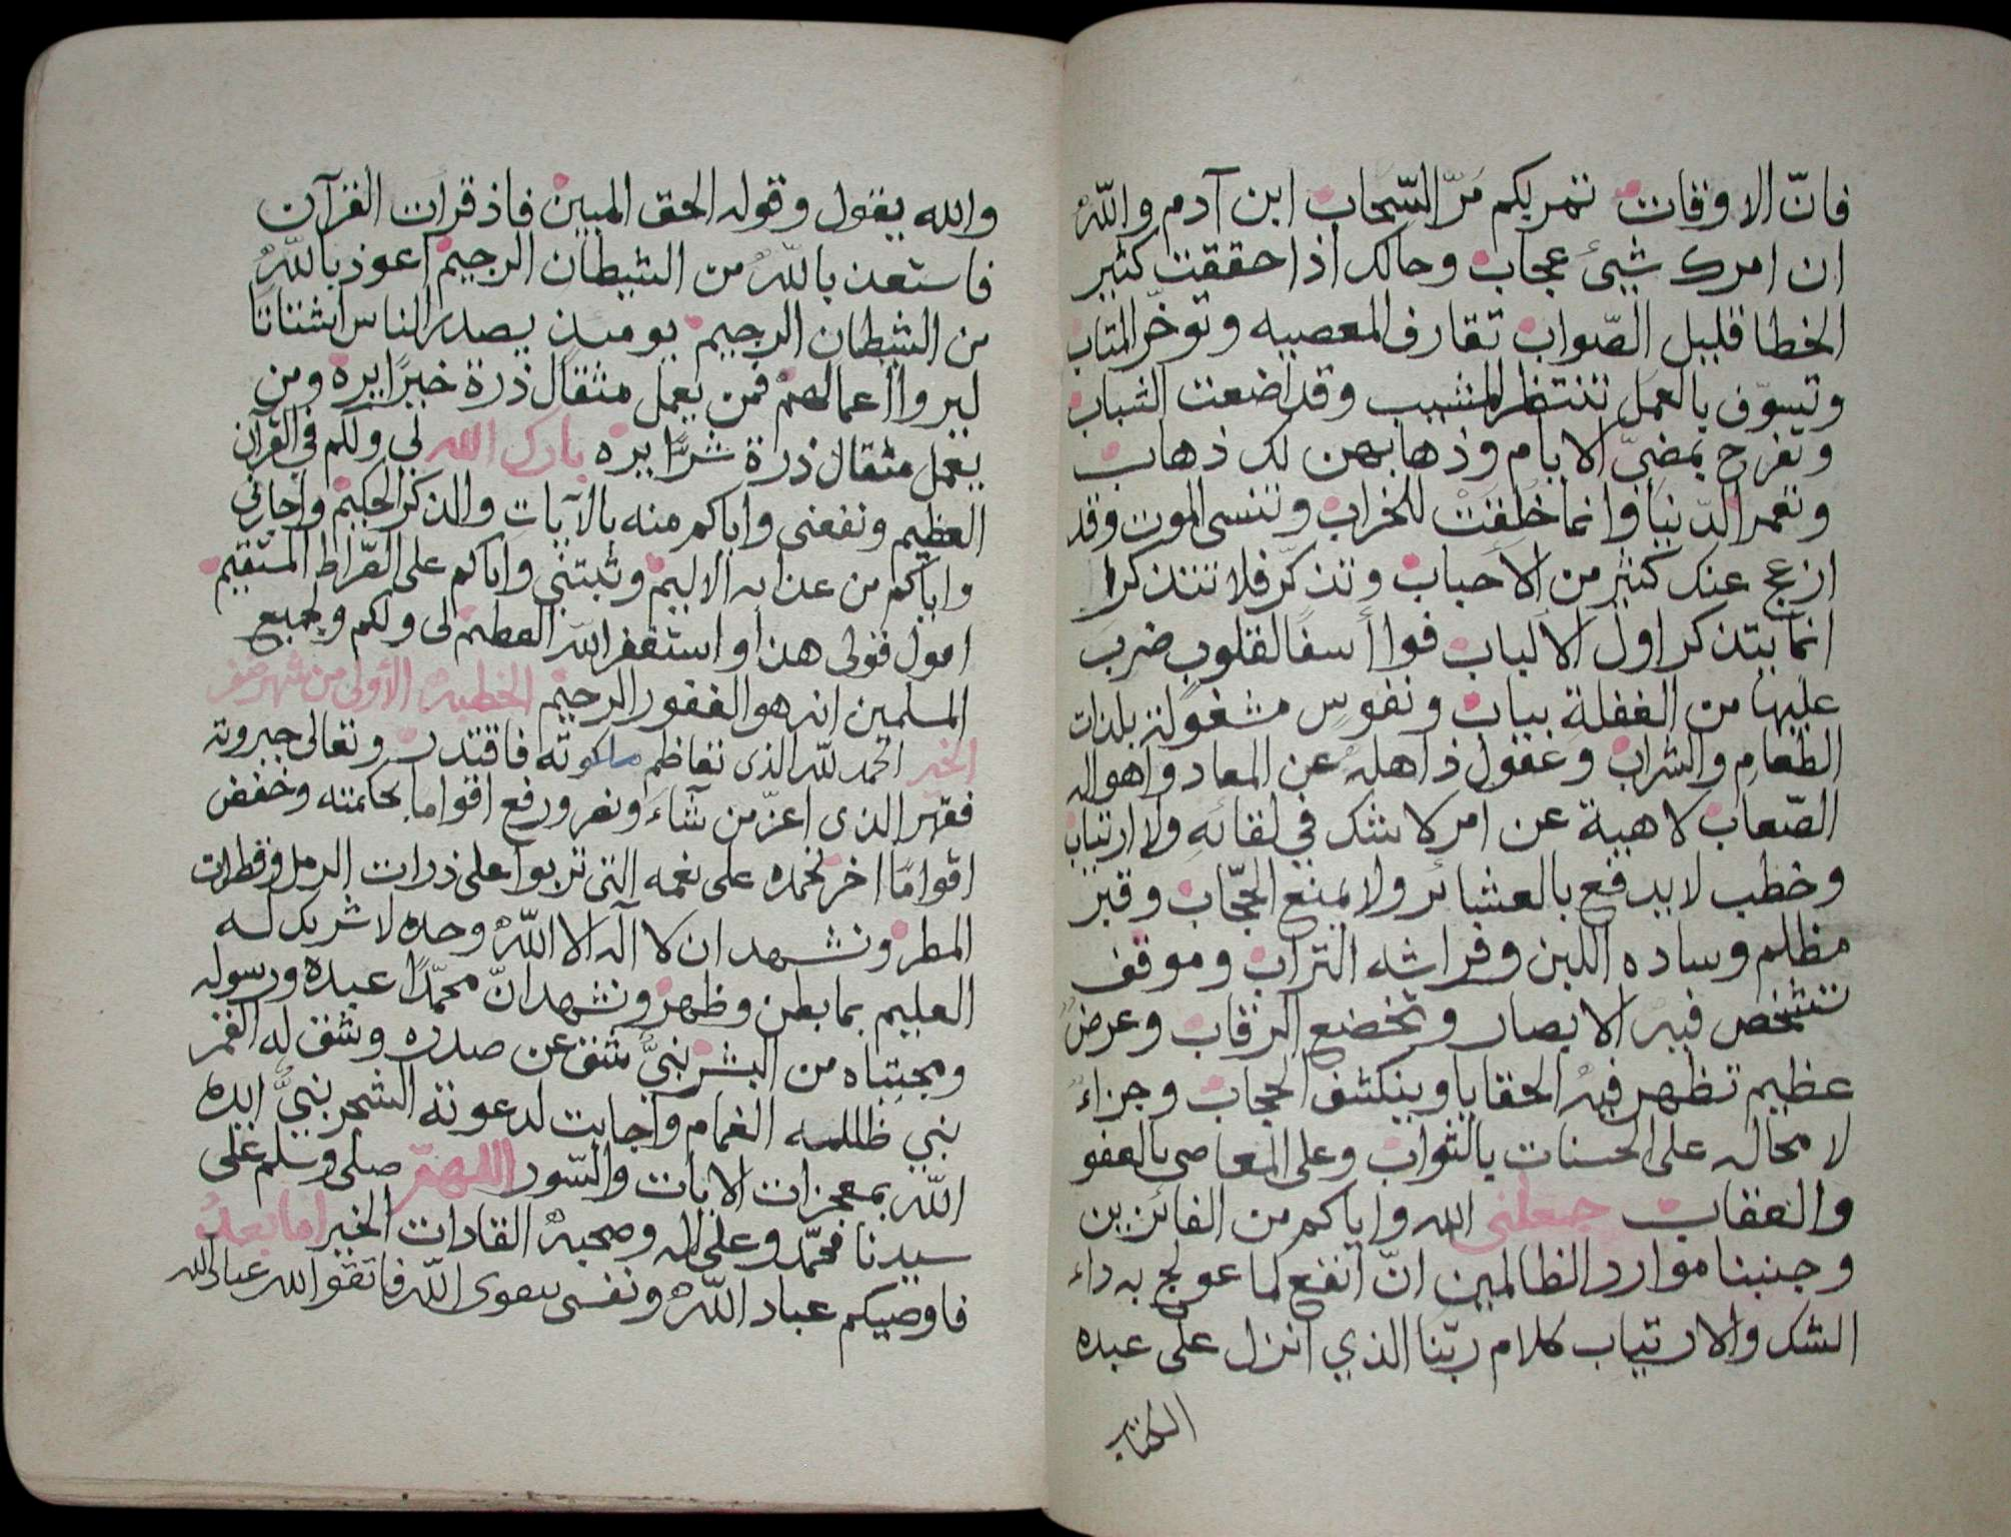 فانّ الاوقات تمر بكم مَرّ السّحاب ابن آدم واللّه
ان امرك شيئ عجاب وحالك اذا حققت كثير
الخطا قليل الصّواب تقارف المعصيه وتوخّر المتاب
وتسوّف بالعمل تنتظر المشيب وقد اضعت الشباب
وتفرح بمضيّ الايام وذهابهن لك ذهاب
وتعمر الدّنيا وانما خُلِقَتْ للخراب وتنسى الموت وقد
ازعج عنك كثير من الاحباب وتذكّر فلا تتذكر
انما يتذكر اول الالباب فوا أسفًا لقلوب ضرب
عليها من الغفلة بباب ونفوس مشغولة بلذات
الطعام والشراب وعقول ذاهله عن المعاد واهواله
الصّعاب لاهية عن امر لا شك في لقائه ولا ارتياب
وخطب لا يدفع بالعشائر ولا يمنع الحجّاب وقبر
مظلم وساده اللبن وفراشه التراب وموقف
تشخص فيه الابصار وتخضع الرقاب وعرض
عظيم تظهر فيه الخفايا وينكشف الحجاب وجزاء
لا محاله على الحسنات بالثواب وعلى المعاصي بالعفو
والعقاب جعلني الله واياكم من الفائزين
وجنبنا موارد الظالمين انّ انفع ما عولج به داء
الشك والارتياب كلام ربّنا الذي انزل على عبده
الكتاب
والله يقول وقوله الحق المبين فاذ قرات القرآن
فاستعذ باللّه من الشيطان الرجيم اعوذ باللّه
من الشيطان الرجيم يومئذٍ يصدر الناس اشتاتا
ليروا اعمالهم فمن يعمل مثقال ذرة خيرًا يره ومن
يعمل مثقال ذرة شرًّا يره بارك الله لي ولكم في القرآن
العظيم ونفعني واياكم منه بالآيات والذكر الحكيم واجارني
واياكم من عذابه الاليم وثبتني واياكم على الصّراط المستقيم
اقول قولي هذا واستغفر اللّه العظيم لي ولكم ولجميع
المسلمين انه هو الغفور الرحيم الخطبة الأولى من شهر صفر
الخير الحمد للّه الذي تعاظم ملكوته فاقتدر وتعالى جبروته
فقهر الذي اعزّ من شاء ونصر ورفع اقواما بحكمته وخفض
اقوامًا اخر نحمده على نعمه التي تربوا على ذرات الرمل وقطرات
المطر ونشهد ان لا اله الا اللّه وحده لا شريك له
العليم بما بطن وظهر ونشهد انّ محمّدًا عبده ورسوله
ومجتباه من البشر نبيٌّ شق عن صدره وشق له القمر
نبي ظللته الغمام واجابت لدعوته الشجر نبيٌّ ايده
اللّه بمعجزات الايات والسّور اللهمّ صلى وسلم على
سيدنا محمّد وعلى اله وصحبه القادات الخير اما بعد
فاوصيكم عباد اللّه ونفسي بتقوى اللّه فاتقوا الله عباد الله